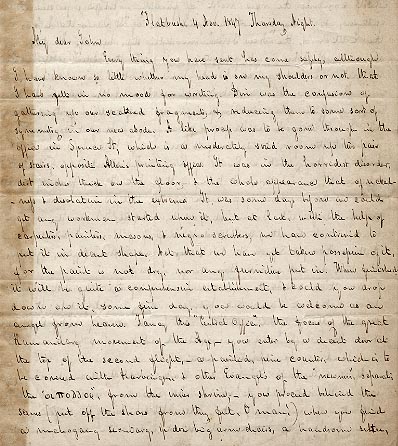 Flatbush 4 Nov. 1847 Thursday Night.
My dear John
Every thing you have sent has come safely, although
I have known so little whether my head is on my shoulders or not, that
I have felt in no mood for writing. Dire was the confusions of
gathering up our scattered fragments, & reducing them to some sort of
symmetry in our new abode. A like process was to be gone through in the
office in Spruce St, which is a moderately sized room up two pair
of stairs, opposite printing office. It was in the horridest disorder,
dirt inches thick on the floor, & the whole appearance that of
& desolation in the extreme. It was some days before we could
get any workmen started upon it, but at last, with the help of
carpenters, painters, masons, & negro scrubbers, we have contrived to
put it in decent shape. Not, that we have yet taken possession of it,
for the paint is not dry, nor any furniture put in. When finished
it will be quite a comprehensive establishment, & could you drop
down on it, some fine day, you would be welcome as an
angel from heaven. Fancy this "the focus of the great
Humanitary movement of the day - you enter by a decent door at
the top of the second flight, - a painted, pine counter, which is to
be covered with Harbingers, & other Evangels of the separates
the from the - you proceed behind the
scenes (put off the shoes from thy feet, O man,) when you find
a mahogany secretary, & two big arm chairs, a handsome settee,